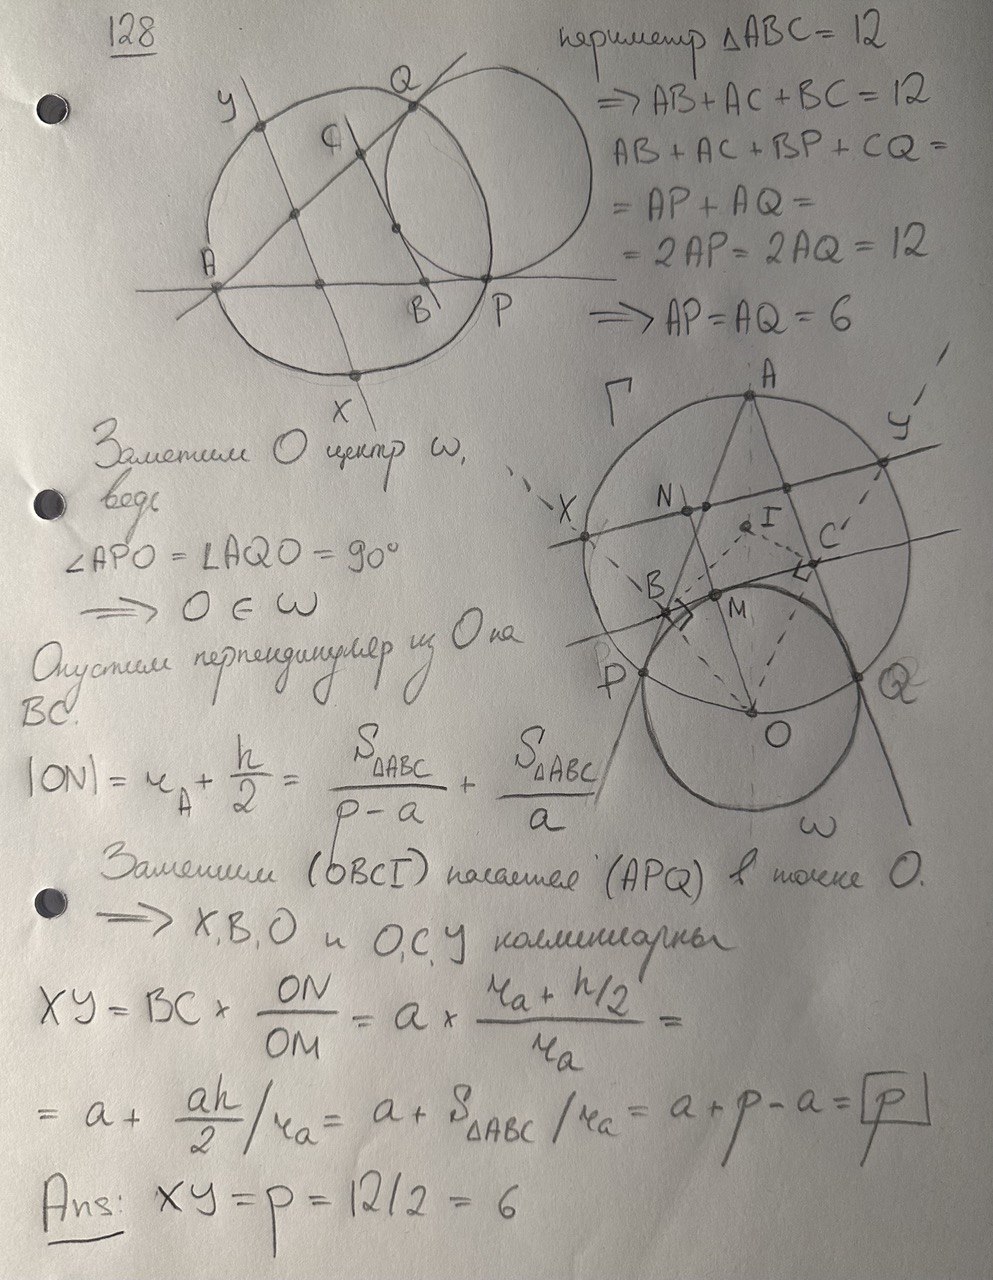 128
периметр △ABC = 12
⇒ AB + AC + BC = 12
AB + AC + BP + CQ =
= AP + AQ =
= 2AP = 2AQ = 12
⇒ AP = AQ = 6
У
Q
C
A
B
P
X
Заметим O центр ω,
ведь
∠APO = ∠AQO = 90°
⇒ O ∈ ω
Опустим перпендикуляр из O на
BC.
Γ
A
У
X
N
I
C
B
M
P
Q
O
ω
|ON| = r_A + h/2 = S_△ABC / (p - a) + S_△ABC / a
Заметим (OBCI) касается (APQ) в точке O.
⇒ X, B, O и O, C, У коллинеарны
XУ = BC × ON/OM = a × (r_a + h/2)/r_a =
= a + ah/2 / r_a = a + S_△ABC / r_a = a + p - a = p
Ans: XУ = p = 12/2 = 6